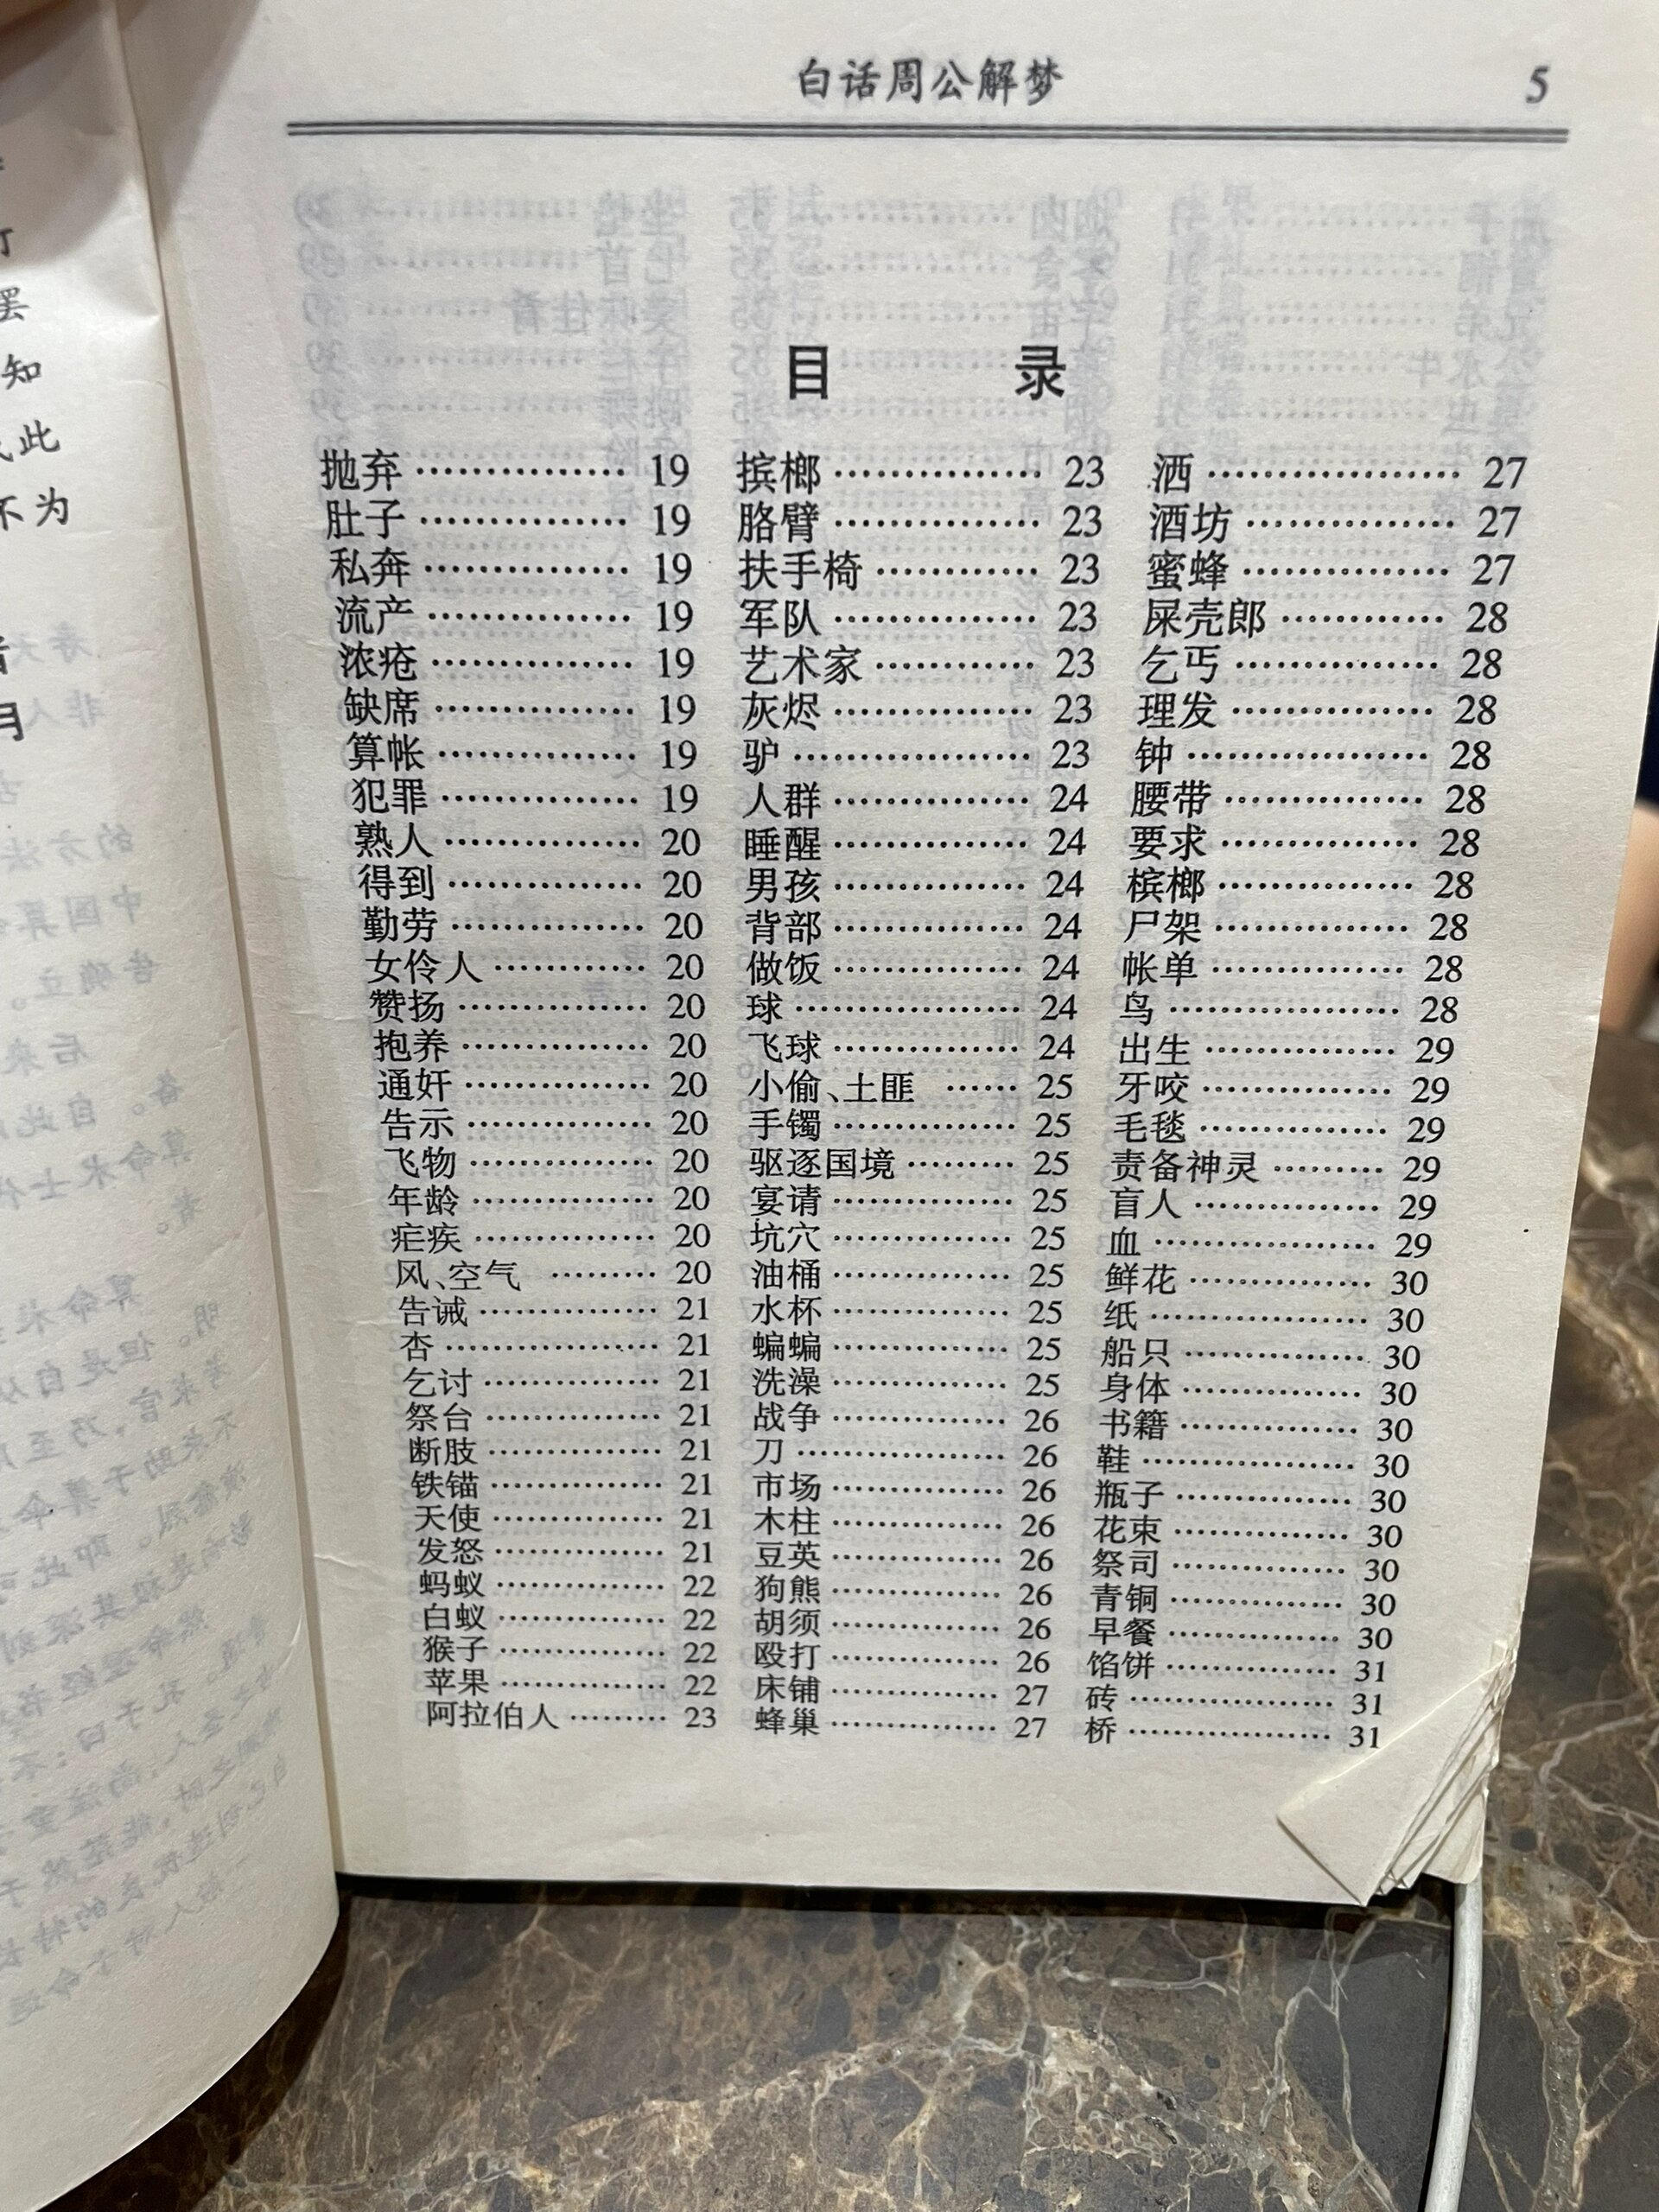 白话周公解梦 5
目 录
抛弃 …………… 19
肚子 …………… 19
私奔 …………… 19
流产 …………… 19
浓疮 …………… 19
缺席 …………… 19
算帐 …………… 19
犯罪 …………… 19
熟人 …………… 20
得到 …………… 20
勤劳 …………… 20
女伶人 ………… 20
赞扬 …………… 20
抱养 …………… 20
通奸 …………… 20
告示 …………… 20
飞物 …………… 20
年龄 …………… 20
疟疾 …………… 20
风、空气 ……… 20
告诫 …………… 21
杏 ……………… 21
乞讨 …………… 21
祭台 …………… 21
断肢 …………… 21
铁锚 …………… 21
天使 …………… 21
发怒 …………… 21
蚂蚁 …………… 22
白蚁 …………… 22
猴子 …………… 22
苹果 …………… 22
阿拉伯人 ……… 23
摈榔 …………… 23
胳臂 …………… 23
扶手椅 ………… 23
军队 …………… 23
艺术家 ………… 23
灰烬 …………… 23
驴 ……………… 23
人群 …………… 24
睡醒 …………… 24
男孩 …………… 24
背部 …………… 24
做饭 …………… 24
球 ……………… 24
飞球 …………… 24
小偷、土匪 …… 25
手镯 …………… 25
驱逐国境 ……… 25
宴请 …………… 25
坑穴 …………… 25
油桶 …………… 25
水杯 …………… 25
蝙蝙 …………… 25
洗澡 …………… 25
战争 …………… 26
刀 ……………… 26
市场 …………… 26
木柱 …………… 26
豆英 …………… 26
狗熊 …………… 26
胡须 …………… 26
殴打 …………… 26
床铺 …………… 27
蜂巢 …………… 27
洒 ……………… 27
酒坊 …………… 27
蜜蜂 …………… 27
屎壳郎 ………… 28
乞丐 …………… 28
理发 …………… 28
钟 ……………… 28
腰带 …………… 28
要求 …………… 28
槟榔 …………… 28
尸架 …………… 28
帐单 …………… 28
鸟 ……………… 28
出生 …………… 29
牙咬 …………… 29
毛毯 …………… 29
责备神灵 ……… 29
盲人 …………… 29
血 ……………… 29
鲜花 …………… 30
纸 ……………… 30
船只 …………… 30
身体 …………… 30
书籍 …………… 30
鞋 ……………… 30
瓶子 …………… 30
花束 …………… 30
祭司 …………… 30
青铜 …………… 30
早餐 …………… 30
馅饼 …………… 31
砖 ……………… 31
桥 ……………… 31